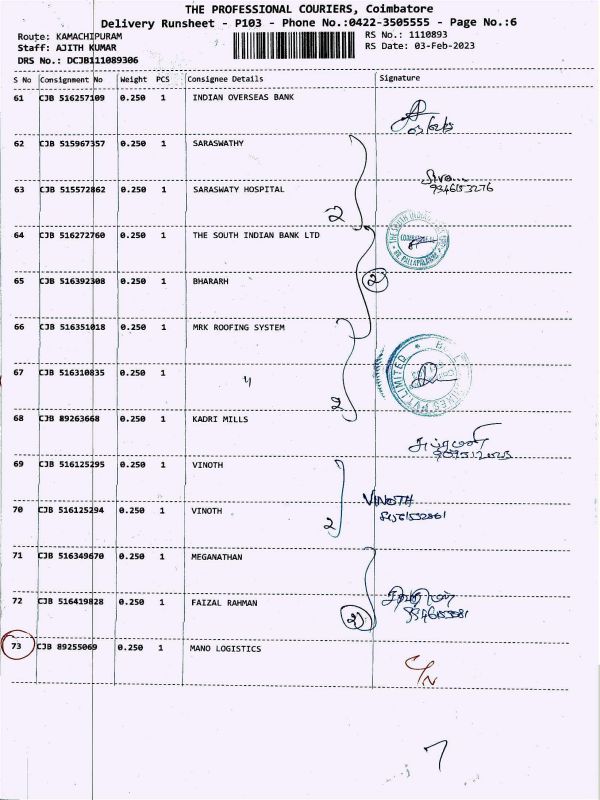 THE PROFESSIONAL COURIERS, Coimbatore
Delivery Runsheet - P103 - Phone No.:0422-3505555 - Page No.:6
Route: KAMACHIPURAM RS No.: 1110893
Staff: AJITH KUMAR RS Date: 03-Feb-2023
DRS No.: DCJB111089306
S No Consignment No Weight PCS Consignee Details Signature
61 CJB 516257109 0.250 1 INDIAN OVERSEAS BANK
62 CJB 515967357 0.250 1 SARASWATHY
63 CJB 515572862 0.250 1 SARASWATY HOSPITAL
2
64 CJB 516272760 0.250 1 THE SOUTH INDIAN BANK LTD
65 CJB 516392308 0.250 1 BHARARH
2
66 CJB 516351018 0.250 1 MRK ROOFING SYSTEM
67 CJB 516310835 0.250 1 "
2
68 CJB 89263668 0.250 1 KADRI MILLS
69 CJB 516125295 0.250 1 VINOTH
VINOTH
70 CJB 516125294 0.250 1 VINOTH
2
71 CJB 516349670 0.250 1 MEGANATHAN
72 CJB 516419828 0.250 1 FAIZAL RAHMAN
2
73 CJB 89255069 0.250 1 MANO LOGISTICS
C/N
7